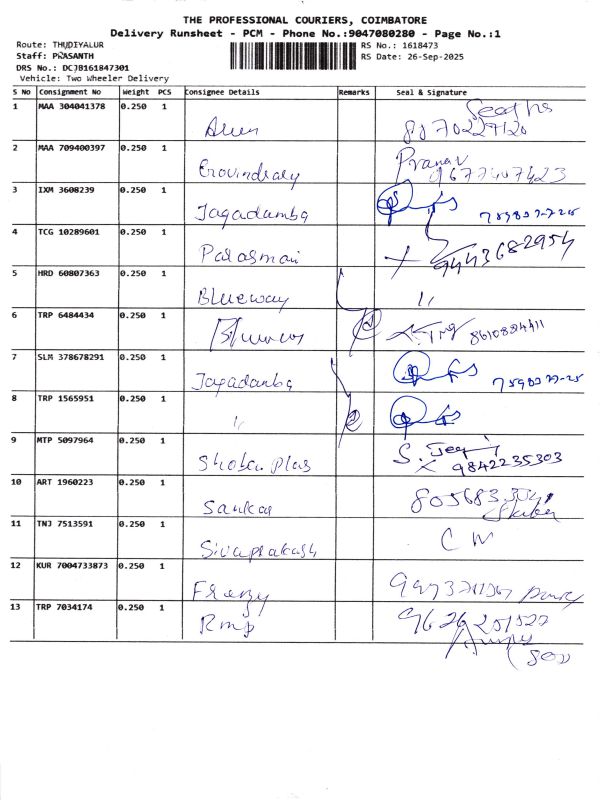 THE PROFESSIONAL COURIERS, COIMBATORE
Delivery Runsheet - PCM - Phone No.:9047080280 - Page No.:1
Route: THUDIYALUR
RS No.: 1618473
Staff: PRASANTH
RS Date: 26-Sep-2025
DRS No.: DCJB161847301
Vehicle: Two Wheeler Delivery
S No Consignment No Weight PCS Consignee Details Remarks Seal & Signature
1 MAA 304041378 0.250 1 Arun
2 MAA 709400397 0.250 1 Pranav 9677407423
3 IXM 3608239 0.250 1 Jagadamba
4 TCG 10289601 0.250 1 Parasmani 9443682954
5 HRD 60807363 0.250 1 Blueway 11
6 TRP 6484434 0.250 1 8610884411
7 SLM 378678291 0.250 1 Jagadamba
8 TRP 1565951 0.250 1 11
9 MTP 5097964 0.250 1 Shoba Plas 9842235303
10 ART 1960223 0.250 1 Sankar
11 TNJ 7513591 0.250 1 Sivaprakash
12 KUR 7004733873 0.250 1 Frenzy
13 TRP 7034174 0.250 1 Rmp